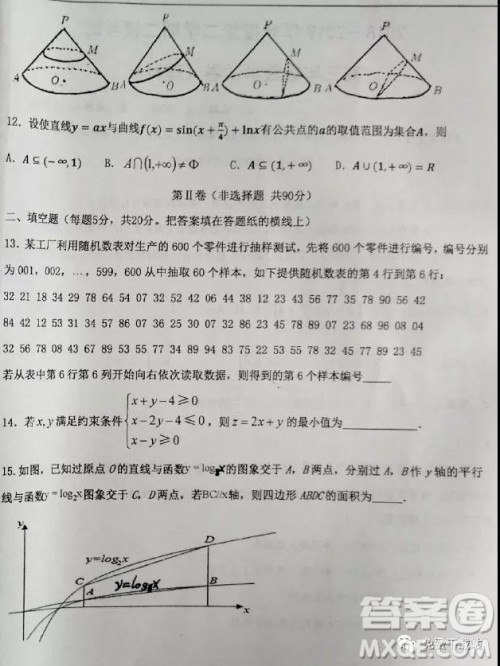 P P P P
M M M M
4 O B A O B A O B A O B
12. 设使直线y = ax与曲线f(x) = sin(x + π/4) + lnx有公共点的a的取值范围为集合A，则
A. A ⊆ (−∞,1) B. A∩(1,+∞) ≠ Φ C. A ⊆ (1,+∞) D. A∪(1,+∞) = R
第Ⅱ卷（非选择题 共90分）
二、填空题（每题5分，共20分。把答案填在答题纸的横线上）
13. 某工厂利用随机数表对生产的 600 个零件进行抽样测试，先将 600 个零件进行编号，编号分别
为 001, 002, …, 599, 600 从中抽取 60 个样本，如下提供随机数表的第 4 行到第 6 行：
32 21 18 34 29 78 64 54 07 32 52 42 06 44 38 12 23 43 56 77 35 78 90 56 42
84 42 12 53 31 34 57 86 07 36 25 30 07 32 86 23 45 78 89 07 23 68 96 08 04
32 56 78 08 43 67 89 53 55 77 34 89 94 83 75 22 53 55 78 32 45 77 89 23 45
若从表中第 6 行第 6 列开始向右依次读取数据，则得到的第 6 个样本编号______
14. 若 x, y 满足约束条件 { x + y − 4 ≥ 0
x − 2y − 4 ≤ 0
x − y ≥ 0 ，则 z = 2x + y 的最小值为______.
15. 如图，已知过原点 O 的直线与函数y = log₈x的图象交于 A，B 两点，分别过 A，B 作 y 轴的平行
线与函数y = log₂x图象交于 C，D 两点，若BC//x轴，则四边形 ABDC 的面积为______.
y
D
y=log₂x
C y=log₈x
A B
x
答案圈
MXQE.COM